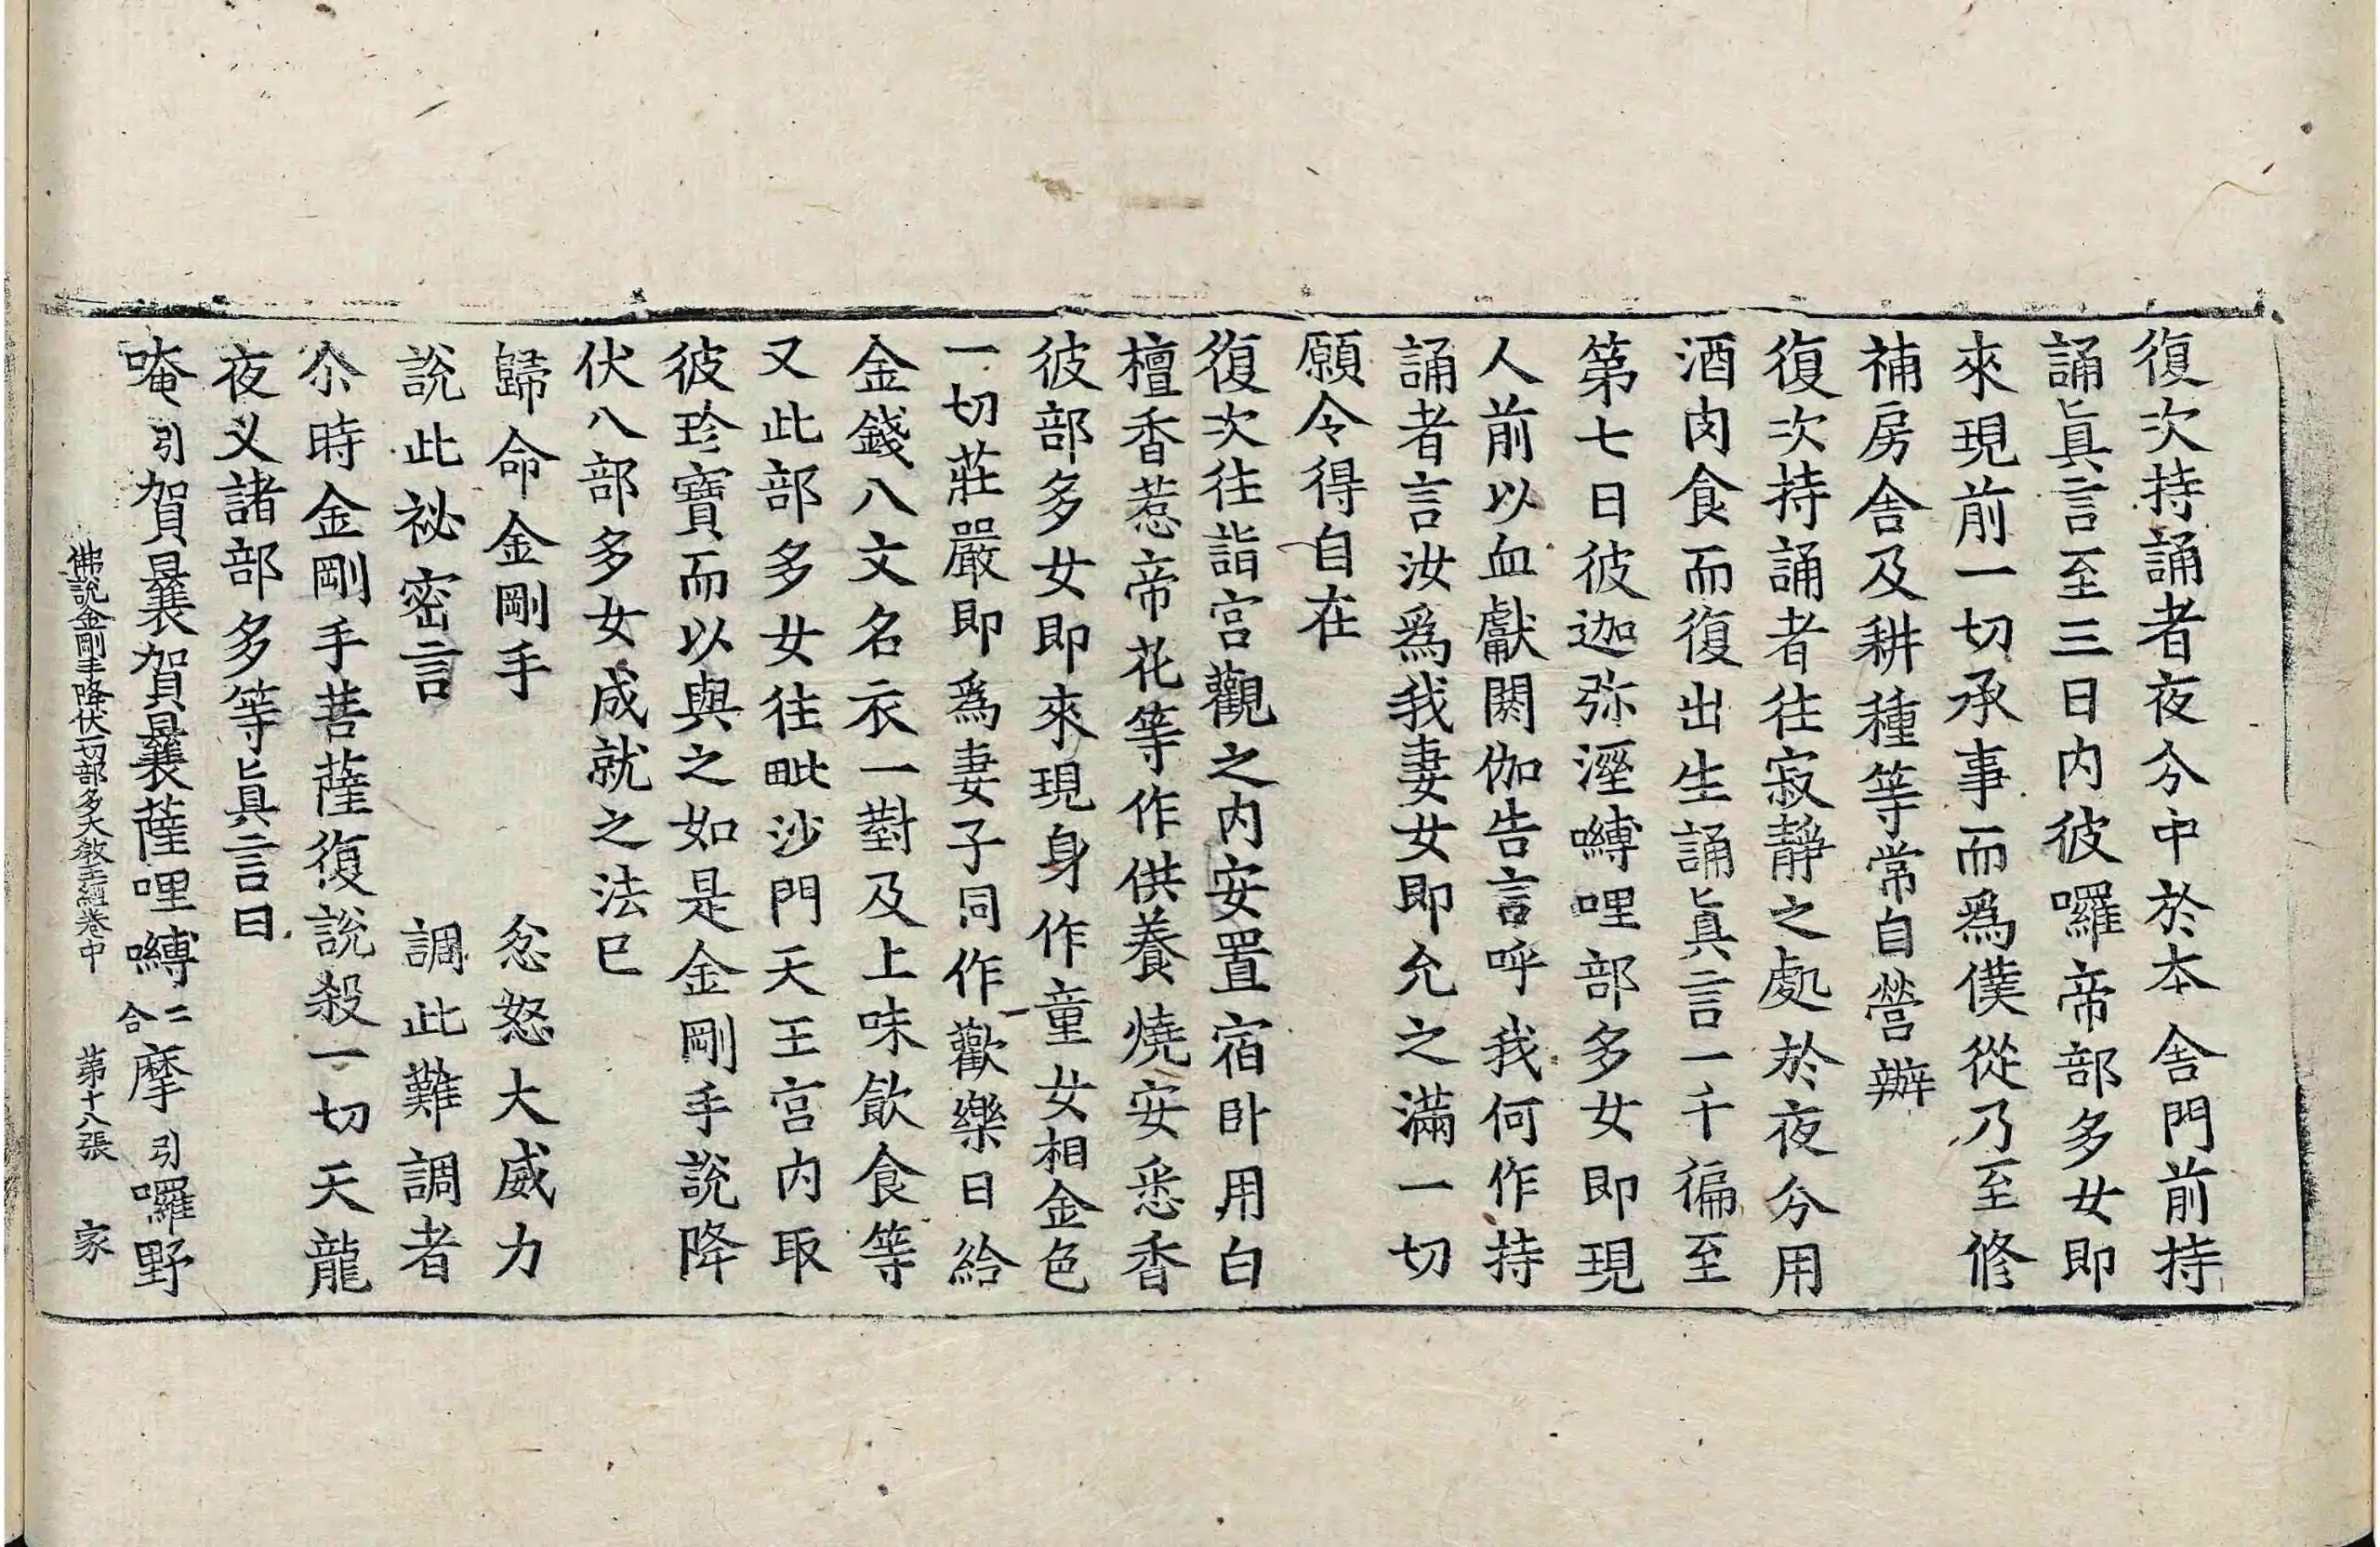 復次持誦者夜分中於本舎門前持
誦眞言至三日内彼囉帝部多女即
來現前一切承事而爲僕從乃至修
補房舎及耕種等常自營辦
復次持誦者往寂靜之處於夜分用
酒肉食而復出生誦眞言一千徧至
第七日彼迦弥溼嚩哩部多女即現
人前以血獻閼伽告言呼我何作持
誦者言汝爲我妻女即允之滿一切
願令得自在
復次往詣宮觀之内安置宿卧用白
檀香惹帝花等作供養燒安悉香
彼部多女即來現身作童女相金色
一切莊嚴即爲妻子同作歡樂日給
金錢八文名衣一對及上味飲食等
又此部多女往毗沙門天王宮内取
彼珍寶而以與之如是金剛手說降
伏八部多女成就之法已
歸命金剛手　忿怒大威力
說此祕密言　調此難調者
尒時金剛手菩薩復說殺一切天龍
夜义諸部多等眞言曰
唵引賀曩賀曩薩哩嚩二合摩引囉野
佛說金剛手降伏一切部多大教王經卷中　第十八張　家